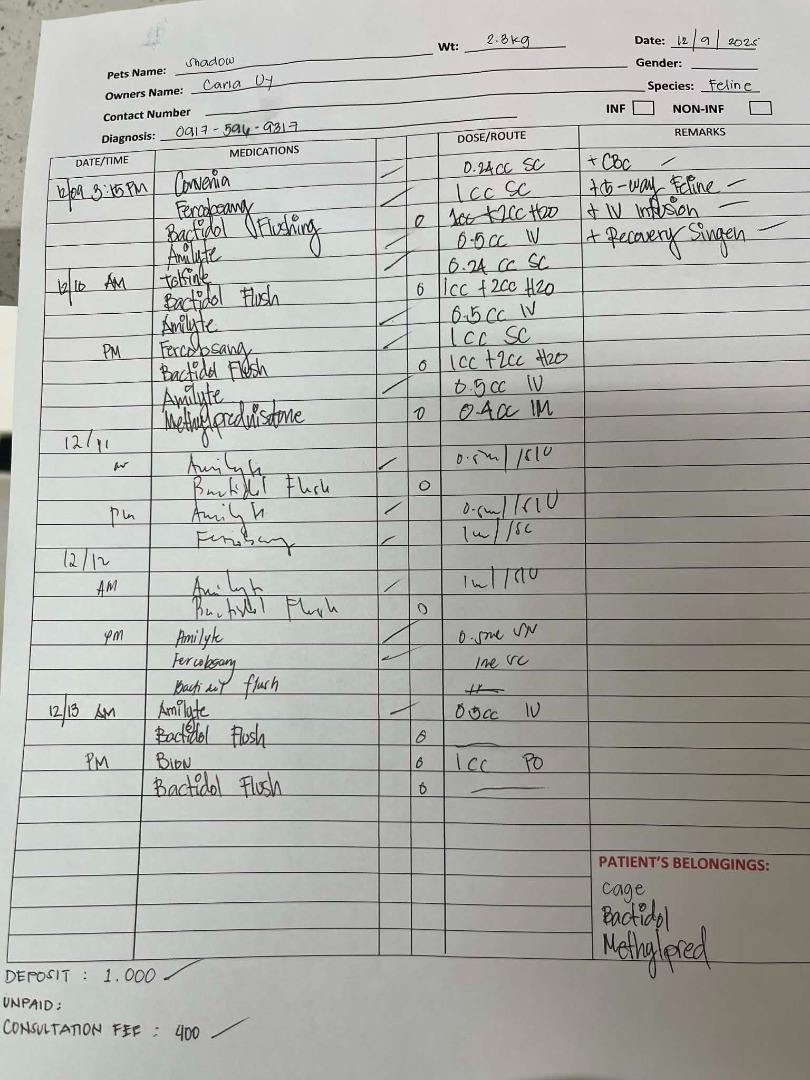 Pets Name: Shadow Wt: 2.8kg Date: 12/9/2025
Owners Name: Carla Uy Gender:
Contact Number Species: Feline
Diagnosis: 0917-596-9317 INF NON-INF
DATE/TIME MEDICATIONS DOSE/ROUTE REMARKS
12/09 3:15 PM Convenia 0.24cc SC + CBC
Fercobsang 1cc SC + 6-way Feline
Bactidol Flushing 0 1cc +2cc H20 + IV Infusion
Amilyte 0.5cc IV + Recovery
tolfine 0.24 cc SC
12/10 AM Bactidol Flush 0 1cc +2cc H20
Amilyte 0.5cc IV
PM Fercobsang 1cc SC
Bactidol Flush 0 1cc +2cc H20
Amilyte 0.5cc IV
Methylprednisolone 0 0.4cc IM
12/11
Amilyte
Bactidol Flush 0
pm Amilyte
Fercobsang 1ml/SC
12/12
AM Amilyte
Bactidol Flush 0
pm Amilyte
Fercobsang
Bactidol flush
12/13 AM Amilyte 0.5cc IV
Bactidol Flush 0
PM Bion 0 1cc PO
Bactidol Flush 0
PATIENT'S BELONGINGS:
cage
Bactidol
Methylpred
DEPOSIT : 1.000
UNPAID:
CONSULTATION FEE : 400